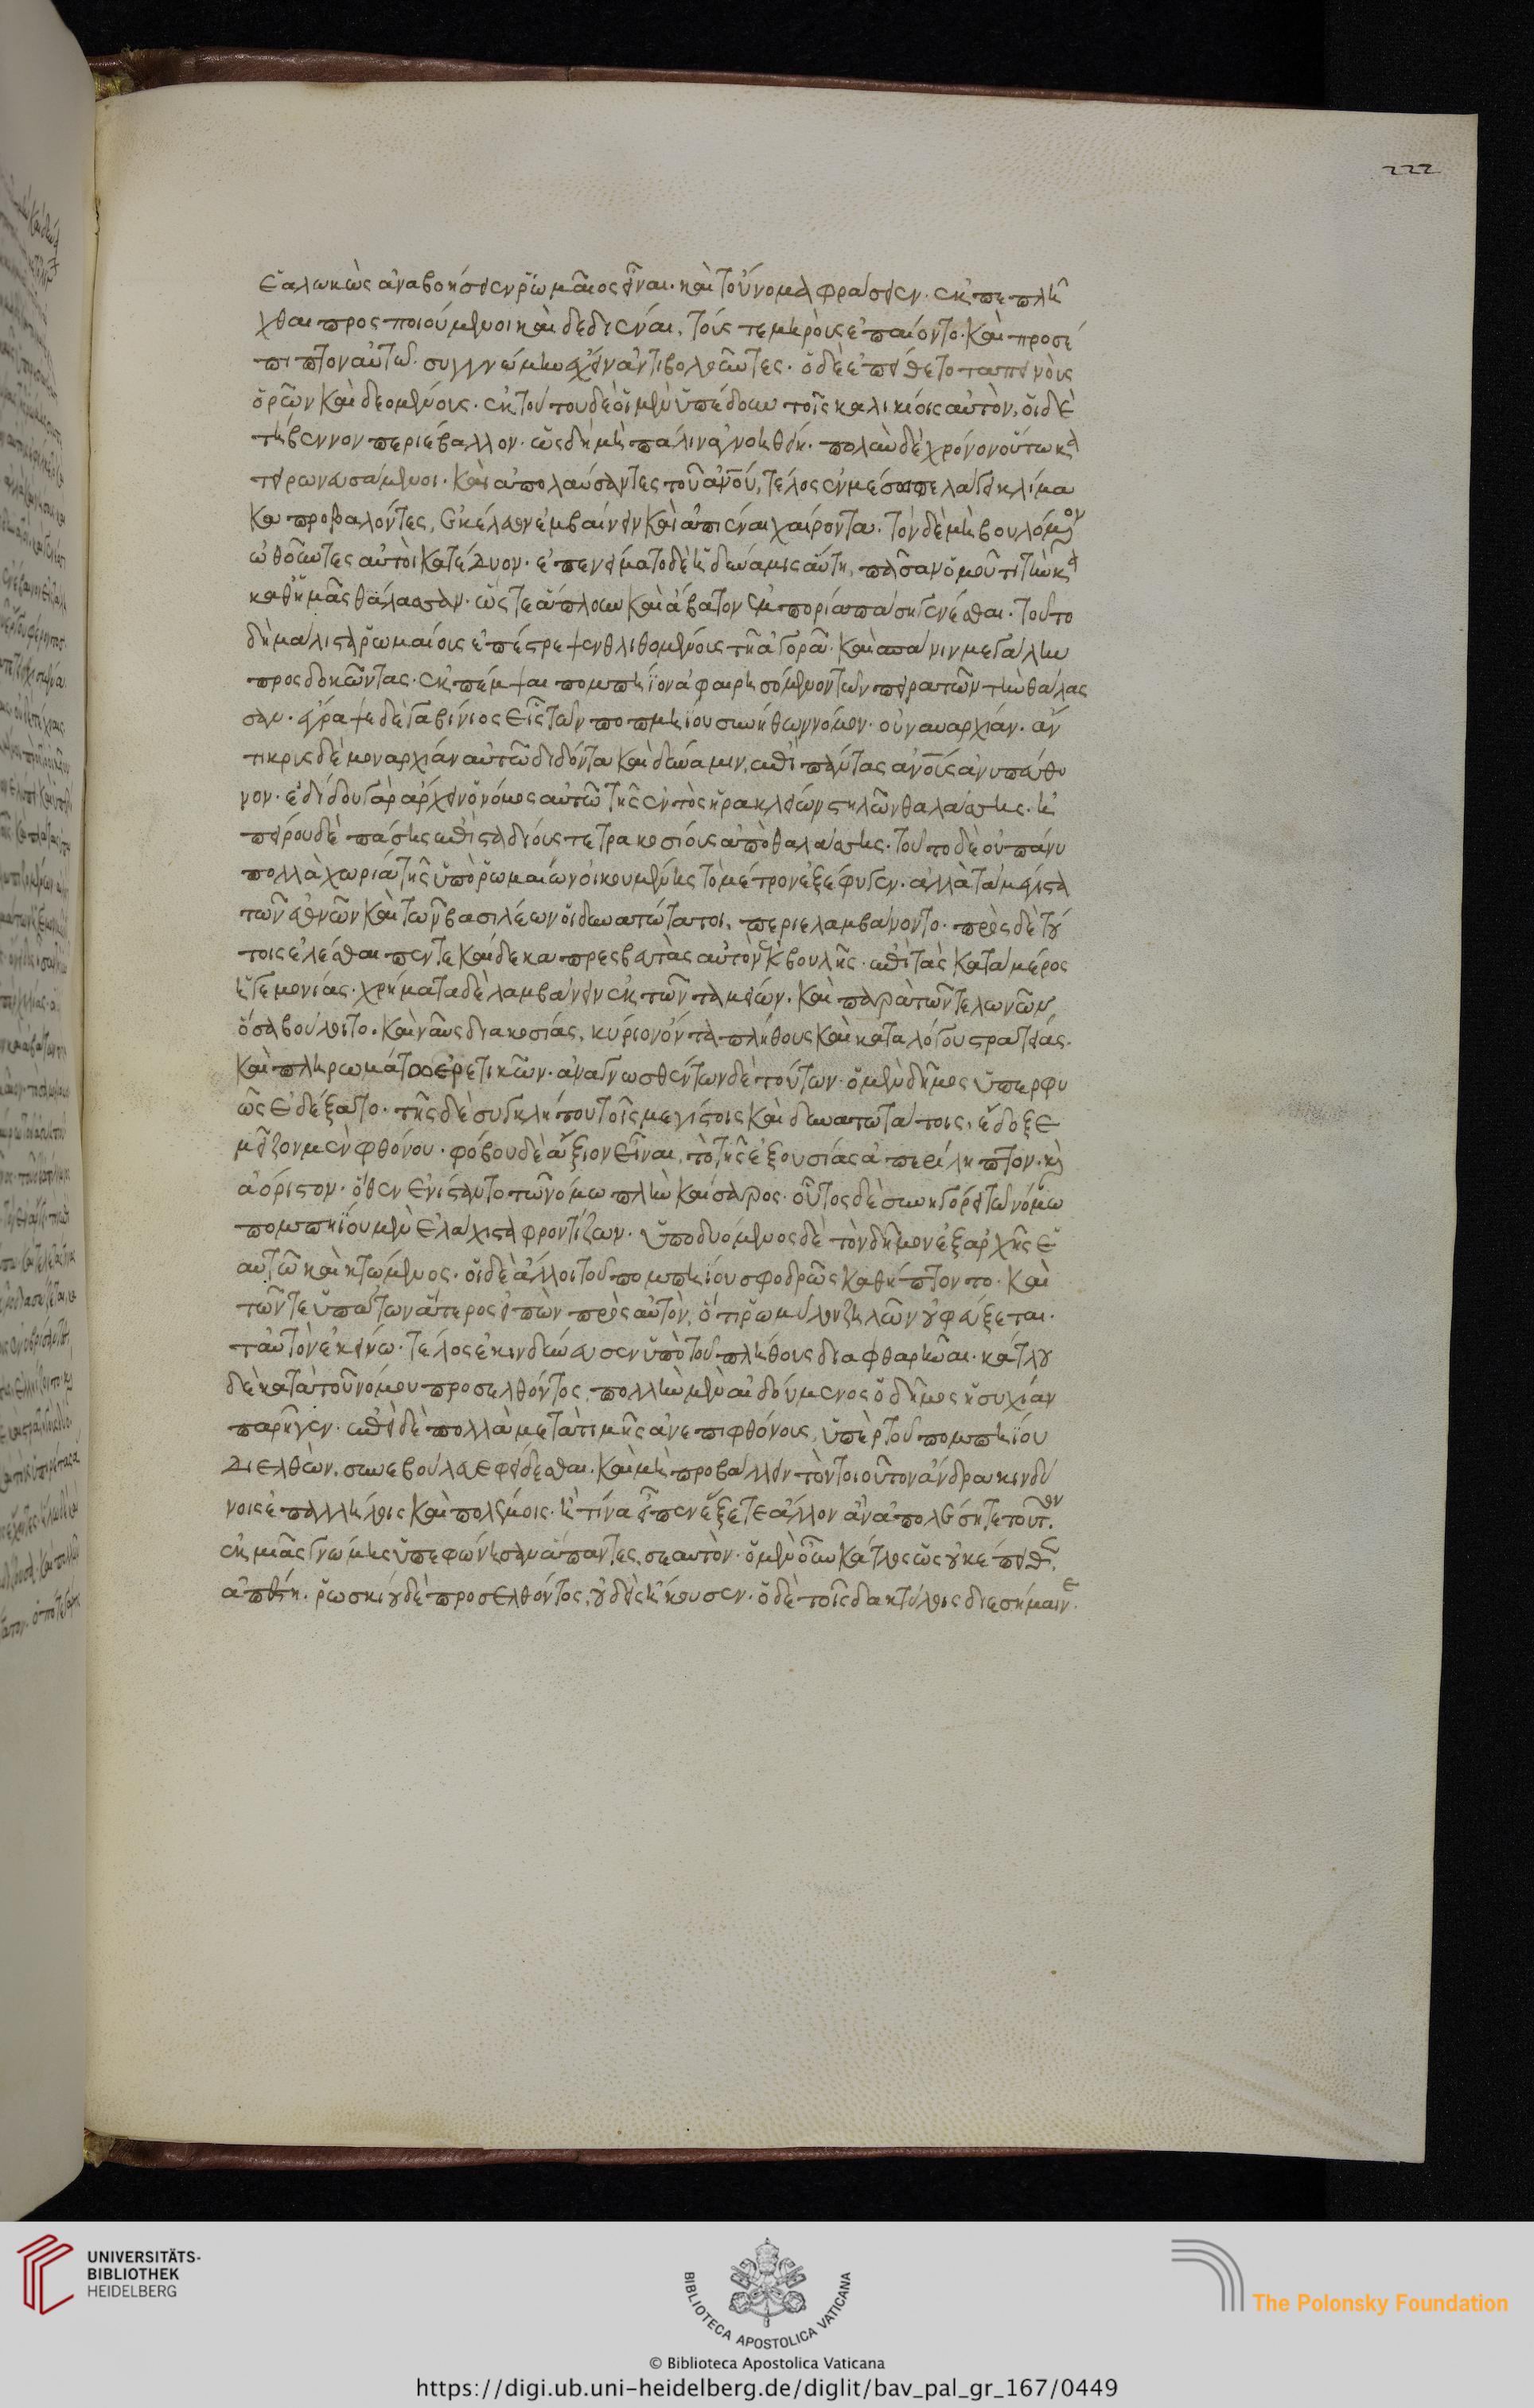 222
ἑαλωκὼς ἀναβοήσειεν ῥωμαῖος εἶναι· καὶ τοὔνομα φράσειεν· ἐκπεπλῆ
χθαι προσποιούμενοι καὶ δεδιέναι, τούς τε μηροὺς ἐπαίοντο· καὶ προσέ
πιπτον αὐτῶ· συγγνώμην ἔχειν ἀντιβολοῦντες· ὁ δὲ ἐπείθετο ταπεινοὺς
ὁρῶν καὶ δεομένους· ἐκ τούτου δὲ οἱ μὲν ὑπέδουν τοῖς καλικίοις αὐτὸν, οἱ δὲ
τήβεννον περιέβαλλον· ὡς δὴ μὴ πάλιν ἀγνοηθείη· πολὺν δὲ χρόνον οὕτω κα
τειρωνευσάμενοι· καὶ ἀπολαύσαντες τοῦ ἀνου, τέλος ἐν μέσω πελάγει κλίμα
κα προβαλόντες, ἐκέλευον ἐμβαίνειν καὶ ἀπιέναι χαίροντα· τὸν δὲ μὴ βουλόμενον
ὠθοῦντες αὐτοὶ κατέδυον· ἐπενείματο δὲ ἡ δύναμις αὕτη, πᾶσαν ὁμοῦ τι τὴν κα
καθ' ἡμᾶς θάλασσαν· ὥστε ἄπλουν καὶ ἄβατον ἐμπορία πάση γενέσθαι· τοῦτο
δὴ μάλιστα ῥωμαίοις ἐπέστρεψεν θλιβομένοις τῆ ἀγορᾶ· καὶ σπάνιν μεγάλην
προσδοκῶντας· ἐκπέμψαι πομπήϊον ἀφαιρησόμενον τῶν πειρατῶν τὴν θάλας
σαν· ἔγραψε δὲ γαβίνιος εἷς τῶν πομπηίου συνήθων νόμον· οὐ ναυαρχίαν· ἄν
τικρυς δὲ μοναρχίαν αὐτῶ διδόντα καὶ δύναμιν, ἐπὶ πάντας ἀνους ἀνυπεύθυ
νον· ἐδίδου γὰρ ἄρχειν ὁ νόμος αὐτῶ τῆς ἐντὸς ἡρακλείων στηλῶν θαλάσσης· ἠ
πείρου δὲ πάσης ἐπὶ σταδίους τετρακοσίους ἀπὸ θαλάσσης· τοῦτο δὲ οὐ πάνυ
πολλὰ χωρία τῆς ὑπὸ ῥωμαίων οἰκουμένης τὸ μέτρον ἐξέφυγεν· ἀλλὰ τὰ μέγιστα
τῶν ἐθνῶν καὶ τῶν βασιλέων οἱ δυνατώτατοι, περιελαμβάνοντο· πρὸς δὲ τού
τοις ἑλέσθαι πεντεκαίδεκα πρεσβευτὰς αὐτὸν ἐκ βουλῆς· ἐπὶ τὰς κατὰ μέρος
ἡγεμονίας· χρήματα δὲ λαμβάνειν ἐκ τῶν ταμείων· καὶ παρὰ τῶν τελωνῶν,
ὅσα βούλοιτο· καὶ ναῦς διακοσίας, κύριον ὄντα πλήθους καὶ καταλόγου στρατείας·
καὶ πληρωμάτων ἐρετικῶν· ἀναγνωσθέντων δὲ τούτων· ὁ μὲν δῆμος ὑπερφυ
ῶς ἐδέξατο· τῆς δὲ συγκλήτου τοῖς μεγίστοις καὶ δυνατωτάτοις, ἔδοξε
μεῖζον μὲν φθόνου· φόβου δὲ ἄξιον εἶναι, τὸ τῆς ἐξουσίας ἀπερίληπτον· καὶ
ἀόριστον· ὅθεν ἐνίσταντο τῶ νόμω πλὴν καίσαρος· οὗτος δὲ συνηγόρει τῶ νόμω
πομπηίου μὲν ἐλάχιστα φροντίζων· ὑποδυόμενος δὲ τὸν δῆμον ἐξαρχῆς ἑ
αυτῶ καὶ κτώμενος· οἱ δὲ ἄλλοι τοῦ πομπηίου σφοδρῶς καθήπτοντο· καὶ
τῶν τε ὑπάτων ἅτερος εἰπὼν πρὸς αὐτὸν, ὅτι ῥωμύλον ζηλῶν οὐ φεύξεται·
ταυτὸν ἐκείνω· τέλος ἐκινδύνευσεν ὑπὸ τοῦ πλήθους διαφθαρῆναι· κάτλου
δὲ κατὰ τοῦ νόμου προσελθόντος, πολλὴν μὲν αἰδούμενος ὁ δῆμος ἡσυχίαν
παρῆγεν· ἐπεὶ δὲ πολλὰ μετὰ τιμῆς ἀνεπιφθόνους, ὑπὲρ τοῦ πομπηίου
διελθὼν, συνεβούλευε φείδεσθαι· καὶ μὴ προβάλλειν τὸν τοιοῦτον ἄνδρα κινδύ
νοις ἐπαλλήλοις καὶ πολέμοις· ἢ τίνα εἶπεν ἕξετε ἄλλον ἂν ἀπολέσητε τοῦτον
ἐκ μιᾶς γνώμης ὑπεφώνησαν ἅπαντες, σεαυτὸν· ὁ μὲν οὖν κάτλος ὡς οὐκ ἔπειθεν,
ἀπέστη· ῥωσκίου δὲ προσελθόντος, οὐδεὶς ἤκουσεν· ὁ δὲ τοῖς δακτύλοις διεσήμαινε·
UNIVERSITÄTS-
BIBLIOTHEK
HEIDELBERG
BIBLIOTECA APOSTOLICA VATICANA
The Polonsky Foundation
© Biblioteca Apostolica Vaticana
https://digi.ub.uni-heidelberg.de/diglit/bav_pal_gr_167/0449